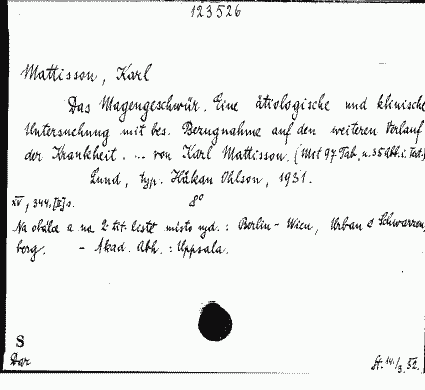 123526
Mattisson, Karl
Das Magengeschwür. Eine ätiologische und klinische
Untersuchung mit bes. Bezugnahme auf den weiteren Verlauf
der Krankheit. ... von Karl Mattisson. (Mit 97 Tab. u. 35 Abb. i. Text.)
Lund, typ. Håkan Ohlson, 1931.
XV, 344, [II] s. 8°
Na obálce a na 2. tit. listě místo vyd.: Berlin - Wien, Urban & Schwarzen-
berg. - Akad. Abh.: Uppsala.
S
Dar
14./3. 32.